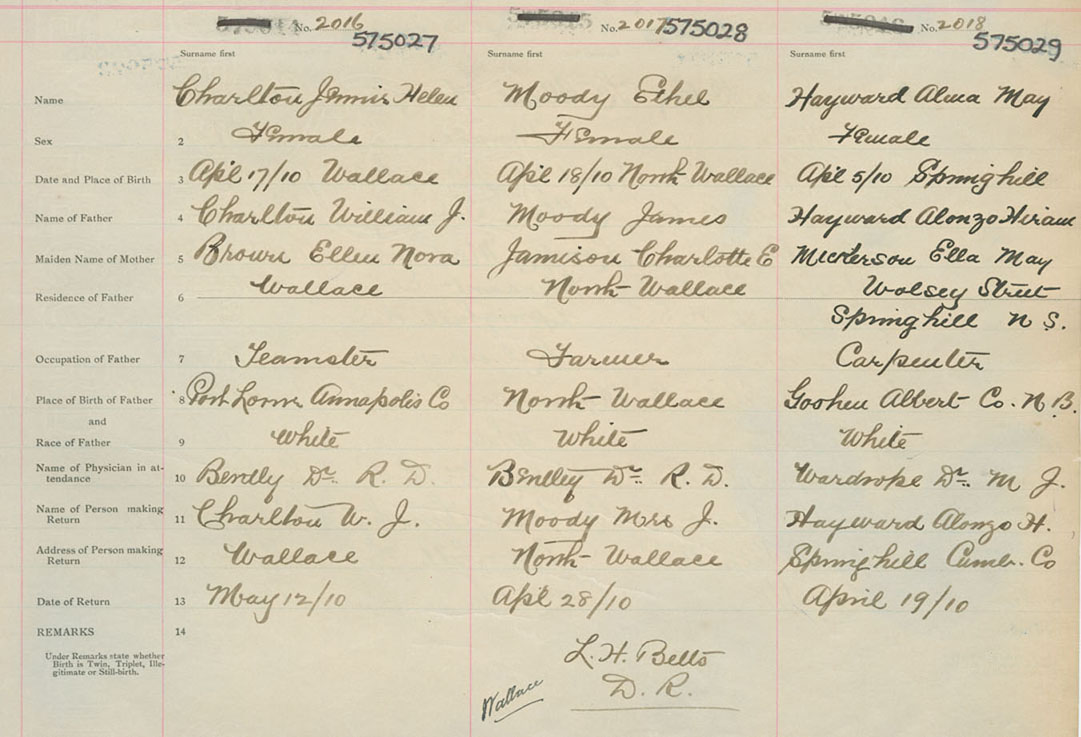 No. 2016 No. 2017 No. 2018
575027 575028 575029
Surname first Surname first Surname first
Name Charlton Jennie Helen Moody Ethel Hayward Alma May
Sex 2 Female Female Female
Date and Place of Birth 3 Apl 17/10 Wallace Apl 18/10 North Wallace Apl 5/10 Springhill
Name of Father 4 Charlton William J. Moody James Hayward Alonzo Hiram
Maiden Name of Mother 5 Brown Ellen Nora Jamison Charlotte E Ella May
Residence of Father 6 Wallace North Wallace Wolsey Street
Springhill N S.
Occupation of Father 7 Teamster Farmer Carpenter
Place of Birth of Father 8 Port Lorne Annapolis Co North Wallace Albert Co. N B.
and
Race of Father 9 White White White
Name of Physician in at-
tendance 10 Dr. R. D. Bentley Dr. R. D. Wardrope Dr. M. J.
Name of Person making
Return 11 Charlton W. J. Moody Mrs J. Hayward Alonzo H.
Address of Person making
Return 12 Wallace North Wallace Springhill Cumb. Co
Date of Return 13 May 12/10 Apl 28/10 April 19/10
REMARKS 14
Under Remarks state whether
Birth is Twin, Triplet, Ille-
gitimate or Still-birth.
L. H. Betts
D. R.
Wallace